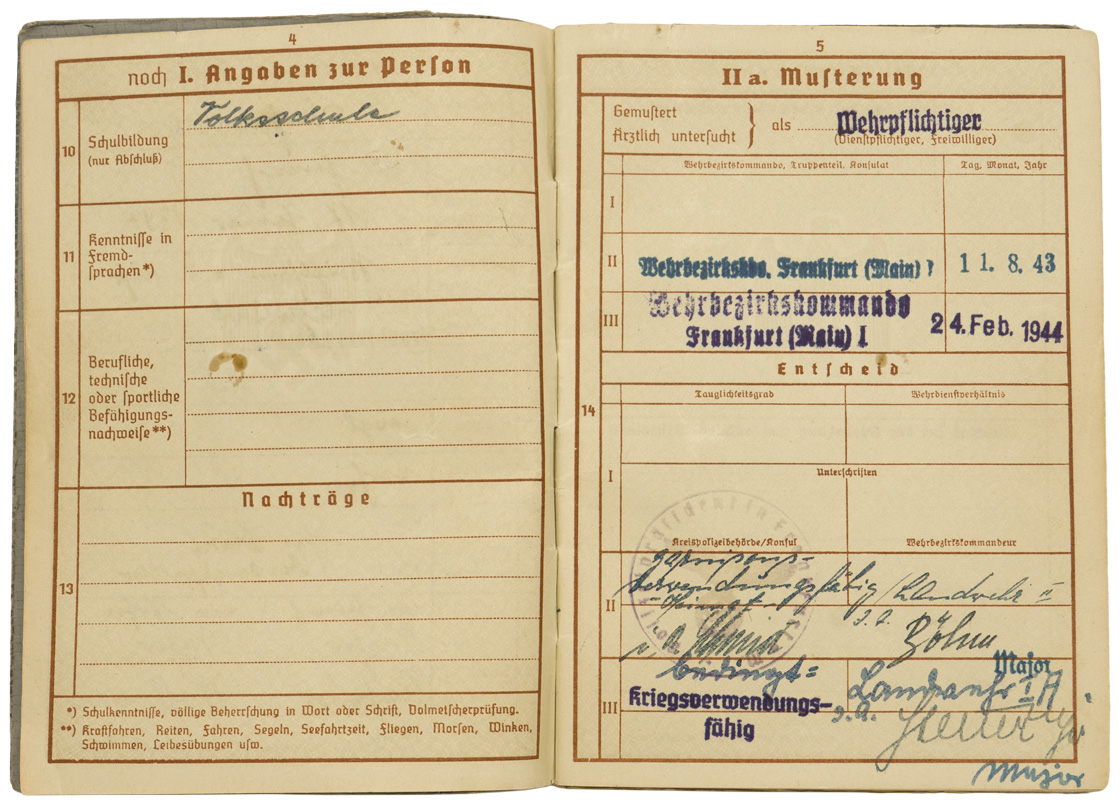 4
noch I. Angaben zur Person
10
Schulbildung
(nur Abschluß)
Volksschule
11
Kenntnisse in
Fremd-
sprachen*)
12
Berufliche,
technische
oder sportliche
Befähigungs-
nachweise**)
Nachträge
13
*) Schulkenntnisse, völlige Beherrschung in Wort oder Schrift, Dolmetscherprüfung.
**) Kraftfahren, Reiten, Fahren, Segeln, Seefahrtzeit, Fliegen, Morsen, Winken,
Schwimmen, Leibesübungen usw.
5
IIa. Musterung
Gemustert
Ärztlich untersucht } als Wehrpflichtiger
(Dienstpflichtiger, Freiwilliger)
Wehrbezirkskommando, Truppenteil, Konsulat
Tag, Monat, Jahr
I
II Wehrbezirkskdo. Frankfurt (Main) I 11. 8. 43
III Wehrbezirkskommando
Frankfurt (Main) I 24. Feb. 1944
Entscheid
14
Tauglichkeitsgrad Wehrdienstverhältnis
I
Unterschriften
Kreispolizeibehörde/Konsul Wehrbezirkskommandeur
II
garnisons-
verwendungsfähig / Landwehr II
Heimat
Böhm
Major
III
bedingt=
kriegsverwendungs-
fähig
Major